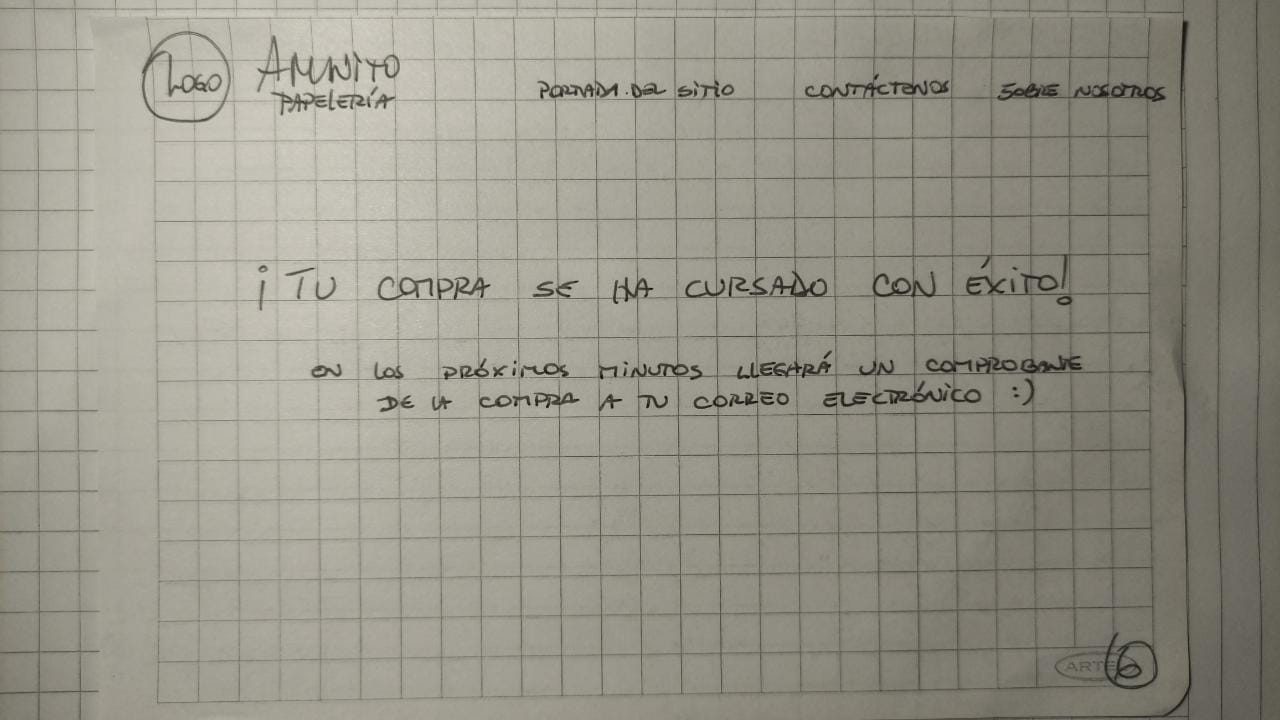 LOGO
AMUNITO
PAPELERÍA
PORTADA DEL SITIO CONTÁCTENOS SOBRE NOSOTROS
¡TU COMPRA SE HA CURSADO CON ÉXITO!
EN LOS PRÓXIMOS MINUTOS LLEGARÁ UN COMPROBANTE
DE LA COMPRA A TU CORREO ELECTRÓNICO :)
ARTE 6